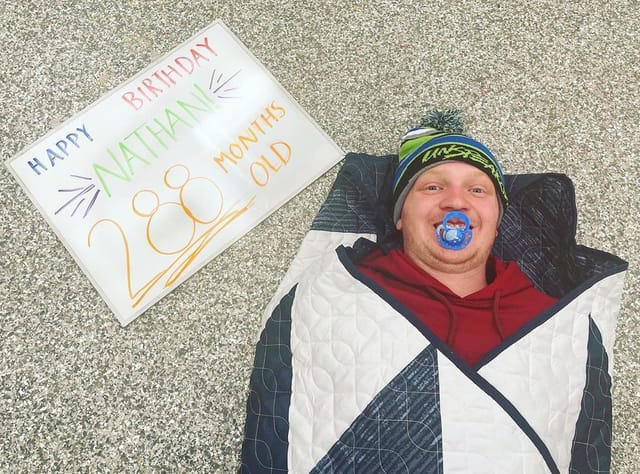 HAPPY BIRTHDAY
NATHAN!
288 MONTHS
OLD